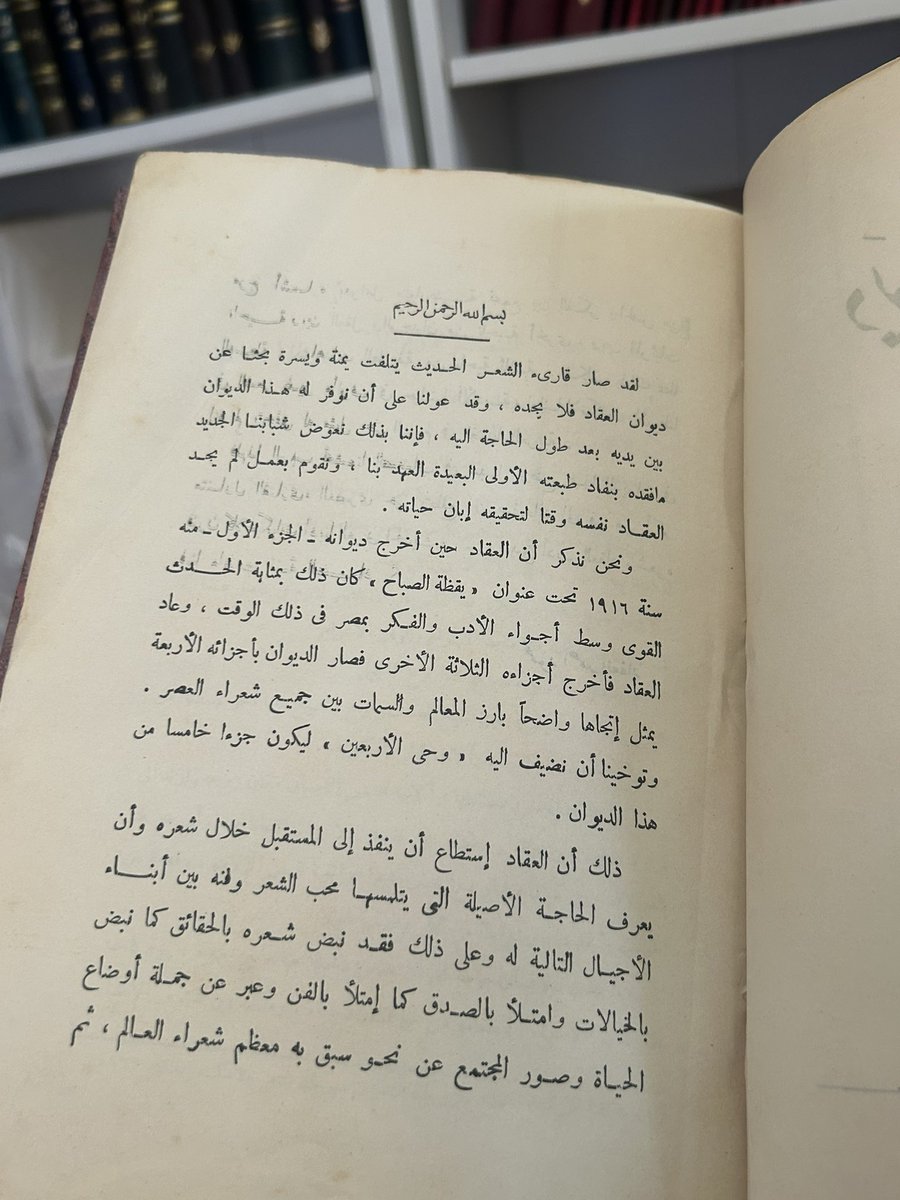 بسم الله الرحمن الرحيم
لقد صار قارىء الشعر الحديث يتلفت يمنة ويسرة بحثا عن
ديوان العقاد فلا يجده ، وقد عولنا على أن نوفر له هذا الديوان
بين يديه بعد طول الحاجة اليه ، فإننا بذلك نعوض شبابنا الجديد
مافقده بنفاد طبعته الأولى البعيدة العهد بنا ، ونقوم بعمل لم يجد
العقاد نفسه وقتا لتحقيقه إبان حياته .
ونحن نذكر أن العقاد حين أخرج ديوانه ـ الجزء الأول ـ منه
سنة ١٩١٦ تحت عنوان « يقظة الصباح » كان ذلك بمثابة الحدث
القوى وسط أجواء الأدب والفكر بمصر فى ذلك الوقت ، وعاد
العقاد فأخرج أجزاءه الثلاثة الأخرى فصار الديوان بأجزائه الأربعة
يمثل إتجاها واضحاً بارز المعالم والسمات بين جميع شعراء العصر .
وتوخينا أن نضيف اليه « وحى الأربعين » ليكون جزءا خامسا من
هذا الديوان .
ذلك أن العقاد إستطاع أن ينفذ إلى المستقبل خلال شعره وأن
يعرف الحاجة الأصيلة التى يتلمسها محب الشعر وفنه بين أبناء
الأجيال التالية له وعلى ذلك فقد نبض شعره بالحقائق كما نبض
بالخيالات وامتلأ بالصدق كما إمتلأ بالفن وعبر عن جملة أوضاع
الحياة وصور المجتمع عن نحو سبق به معظم شعراء العالم ، ثم